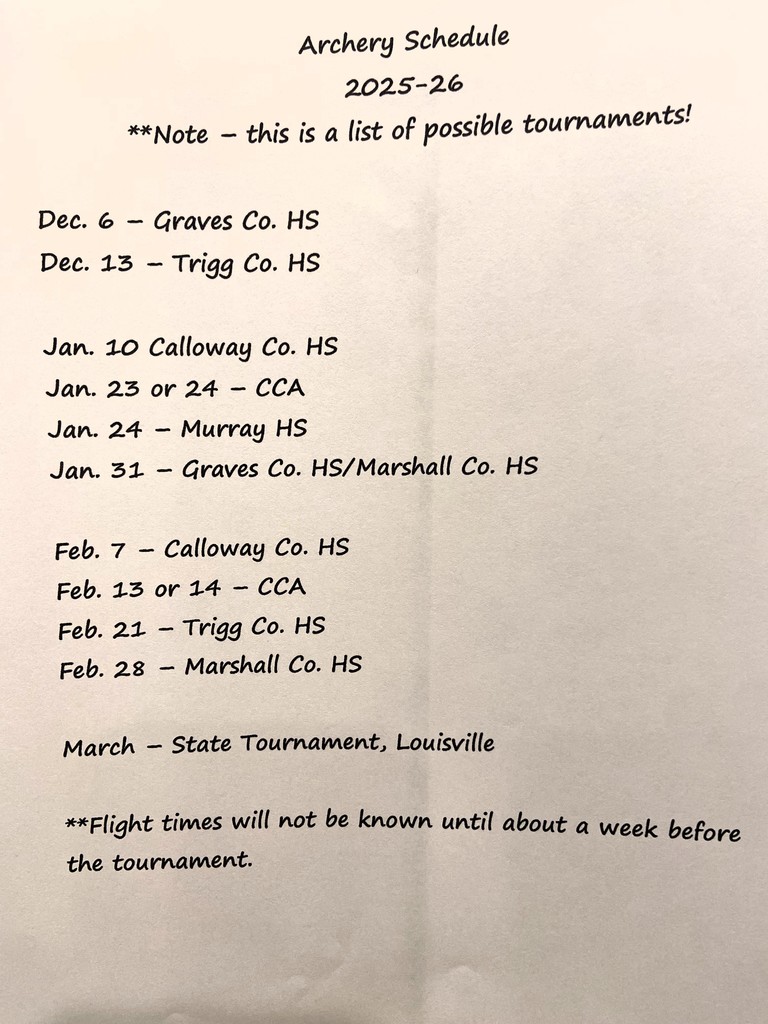 Archery Schedule
2025-26
**Note – this is a list of possible tournaments!
Dec. 6 – Graves Co. HS
Dec. 13 – Trigg Co. HS
Jan. 10 Calloway Co. HS
Jan. 23 or 24 – CCA
Jan. 24 – Murray HS
Jan. 31 – Graves Co. HS/Marshall Co. HS
Feb. 7 – Calloway Co. HS
Feb. 13 or 14 – CCA
Feb. 21 – Trigg Co. HS
Feb. 28 – Marshall Co. HS
March – State Tournament, Louisville
**Flight times will not be known until about a week before
the tournament.